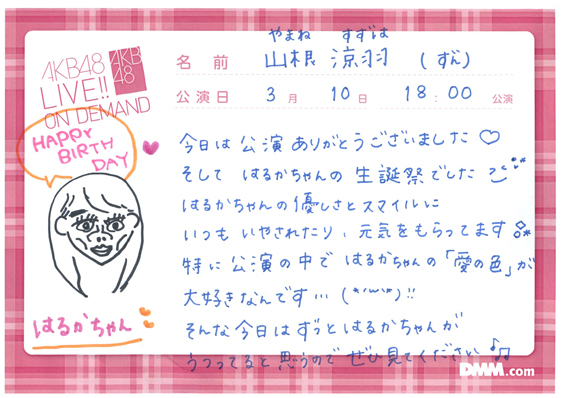 やまね すずは
名前 山根 涼羽 (ずん)
AKB48
LIVE!!
ON DEMAND
AKB
48
公演日 3月 10日 18:00 公演
HAPPY
BIRTH
DAY
今日は公演ありがとうございました♡
そして はるかちゃんの 生誕祭でした
はるかちゃんの優しさとスマイルに
いつも いやされたり、元気をもらってます
特に 公演の中で はるかちゃんの「愛の色」が
大好きなんです…(*'ω'*)!!
そんな今日は ずっと はるかちゃんが
うつってると思うので ぜひ見てください♪♫
はるかちゃん
DMM.com